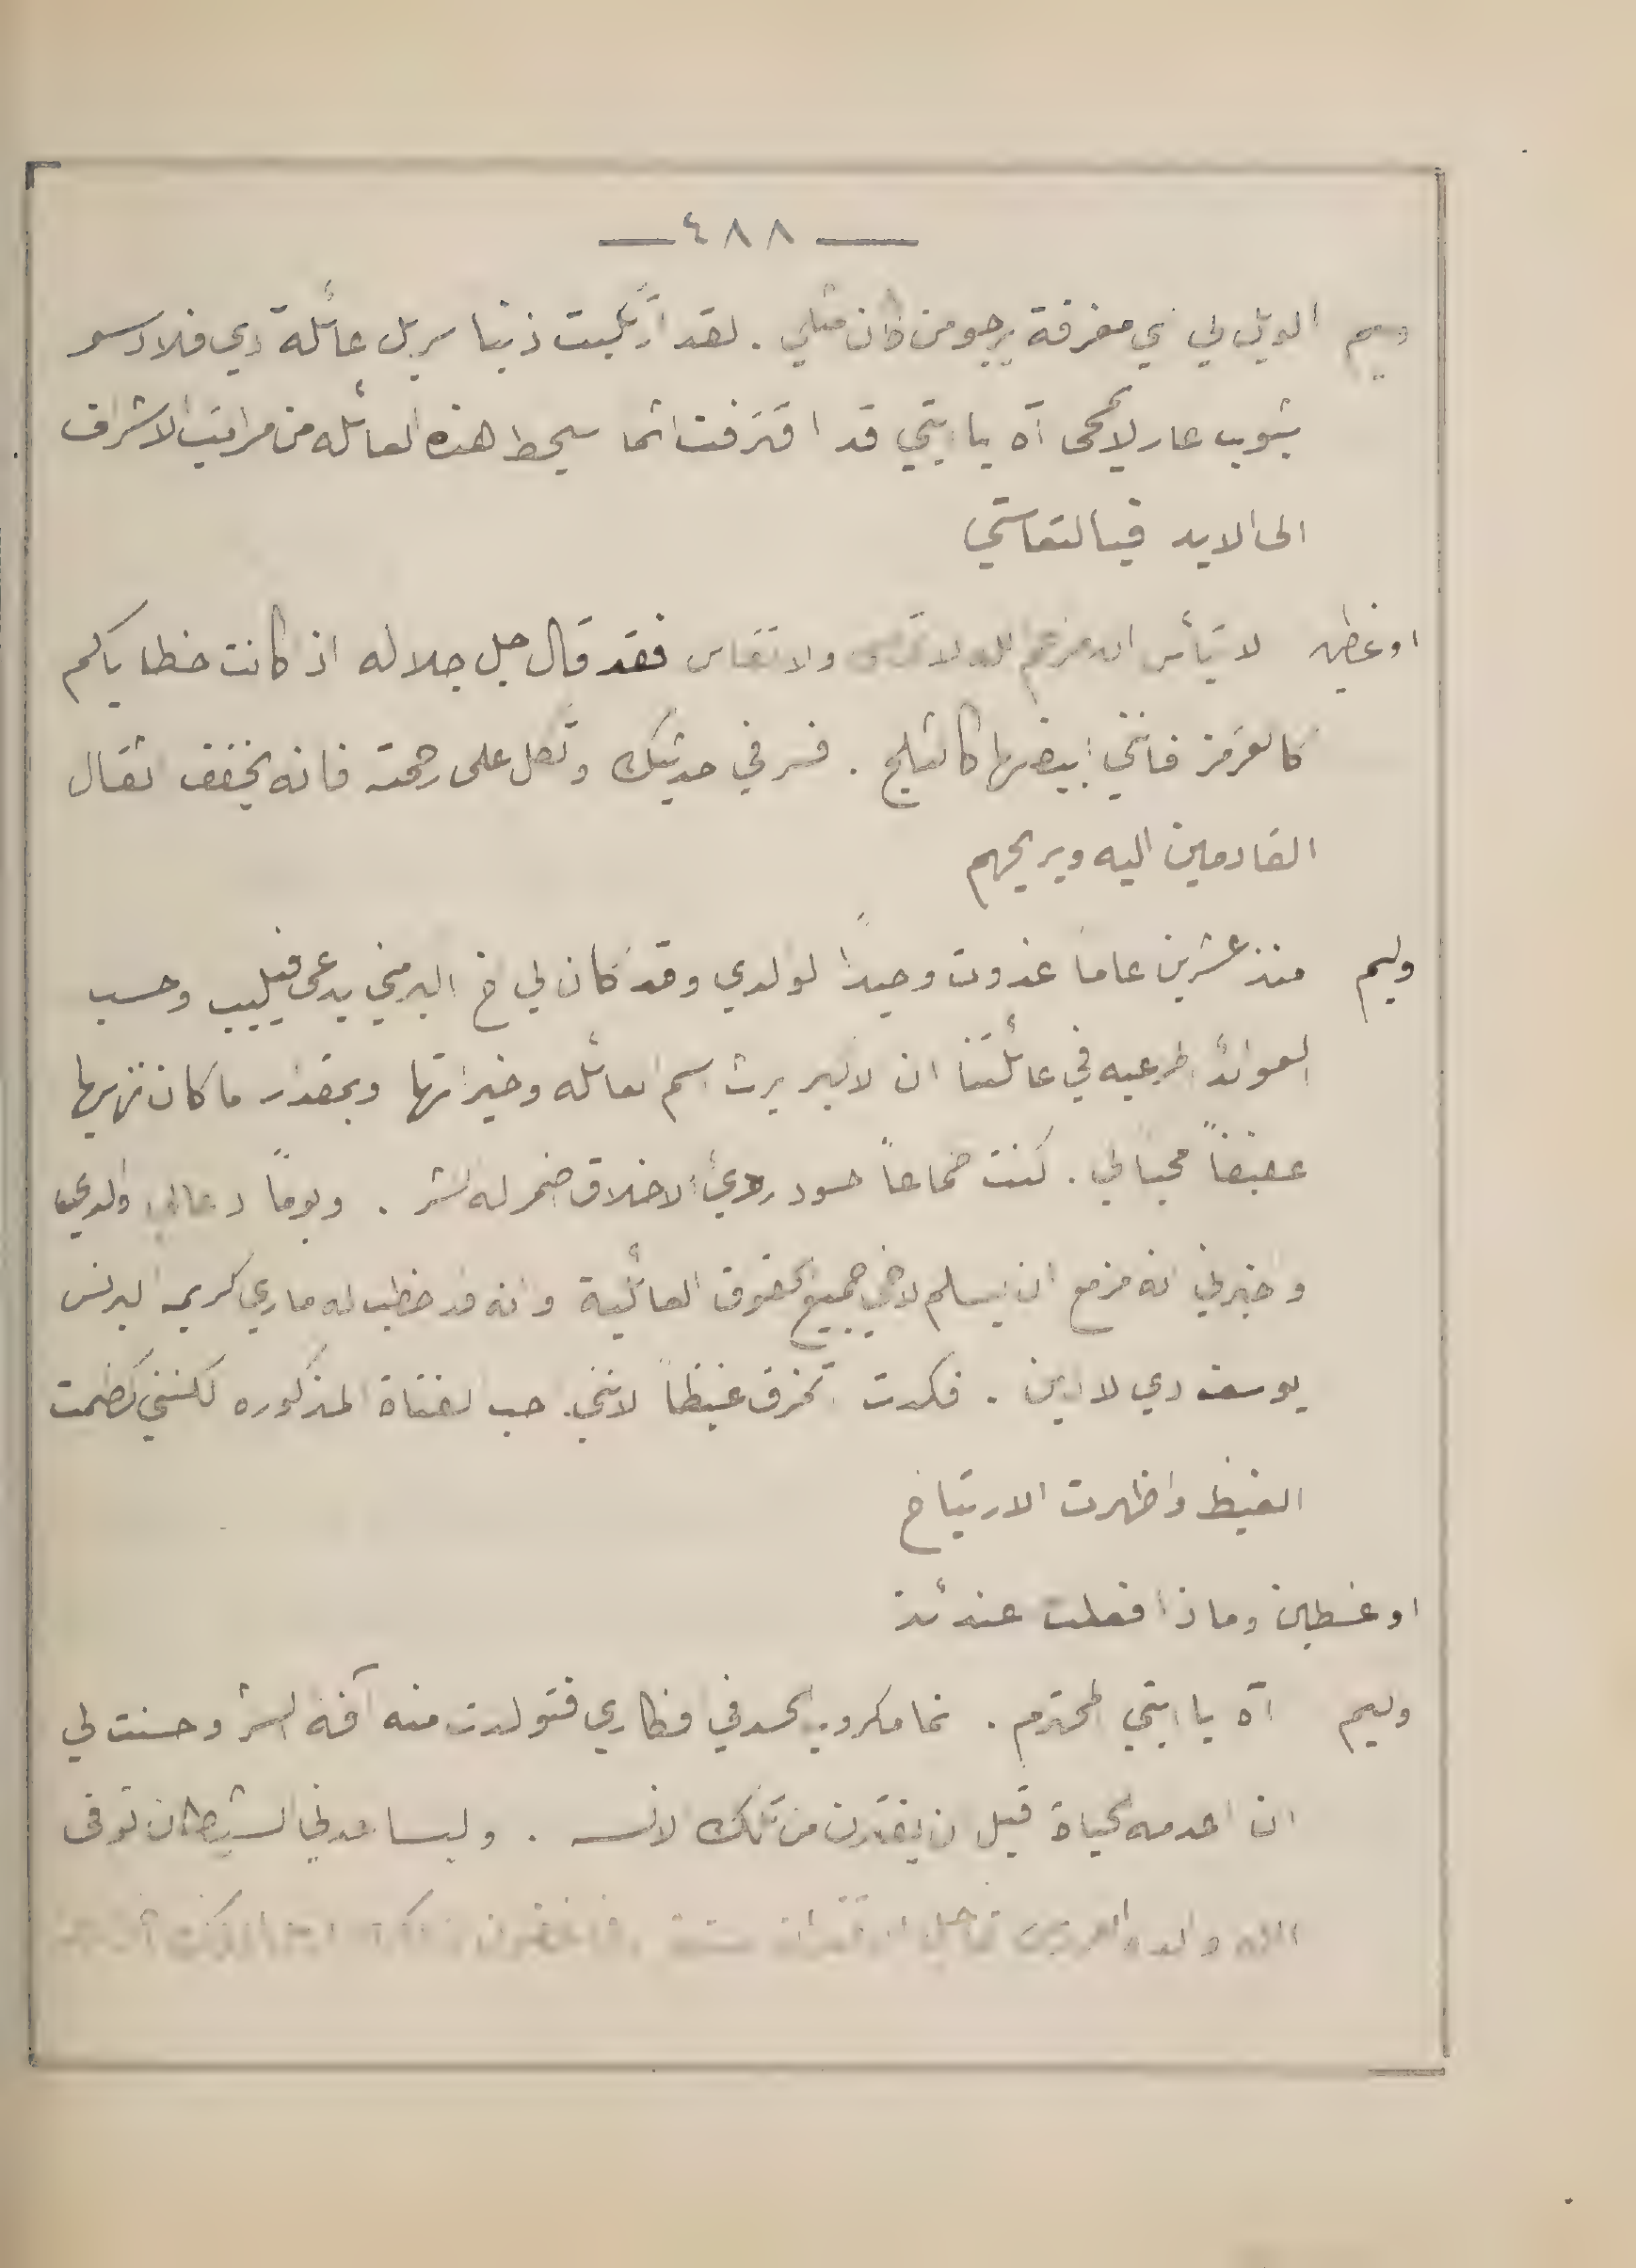 — ٤٨٨ —
وليم الويل لي اي مغفرة يرجو من كان مثلي . لقد ارتكبت ذنبا سربل عائلة دي فلادسو
بثوب عار لا يمحى آه يا ابتي قد اقترفت اثما سيحط هذه العائله من مراتب الاشراف
الى الابد فيا لتعاستي
اوغسطين لا تيأس والا تقاس فقد قال جل جلاله اذ كانت خطاياكم
كالقرمز فانني ابيضها كالثلج . فسر في حديثك وتكل على رحمته فانه يخفف اثقال
القادمين اليه ويريحهم
وليم منذ عشرين عاما غدوت وحيدا لولدي وقد كان لي اخ اكبر مني يدعى فيليب وحسب
العوائد المرعيه في عائلتنا ان الاكبر يرث اسم العائله وخيراتها وبمقدار ما كان نزيها
عفيفاً محبا لي . كنت طماعاً حسود ردئ الاخلاق اضمر له الشر . ويوماً دعاني والدي
واخبرني انه مزمع ان يسلم لاخي جميع الحقوق العائلية وانه قد خطب له ماري كريمه البرنس
يوسف دي لا دين . فكدت اتمزق غيظاً لانني احب الفتاة المذكوره لكنني كظمت
الغيظ واظهرت الارتياح
اوغسطين وماذا فعلت عندئذ
وليم آه يا ابتي المحترم . نما مكروب الحسد في افكاري فتولدت منه آفة الشر وحسنت لي
ان اعدمه الحياة قبل ان يقترن من تلك الانسه . وليساعدني الشيطان توفى
والد العروس